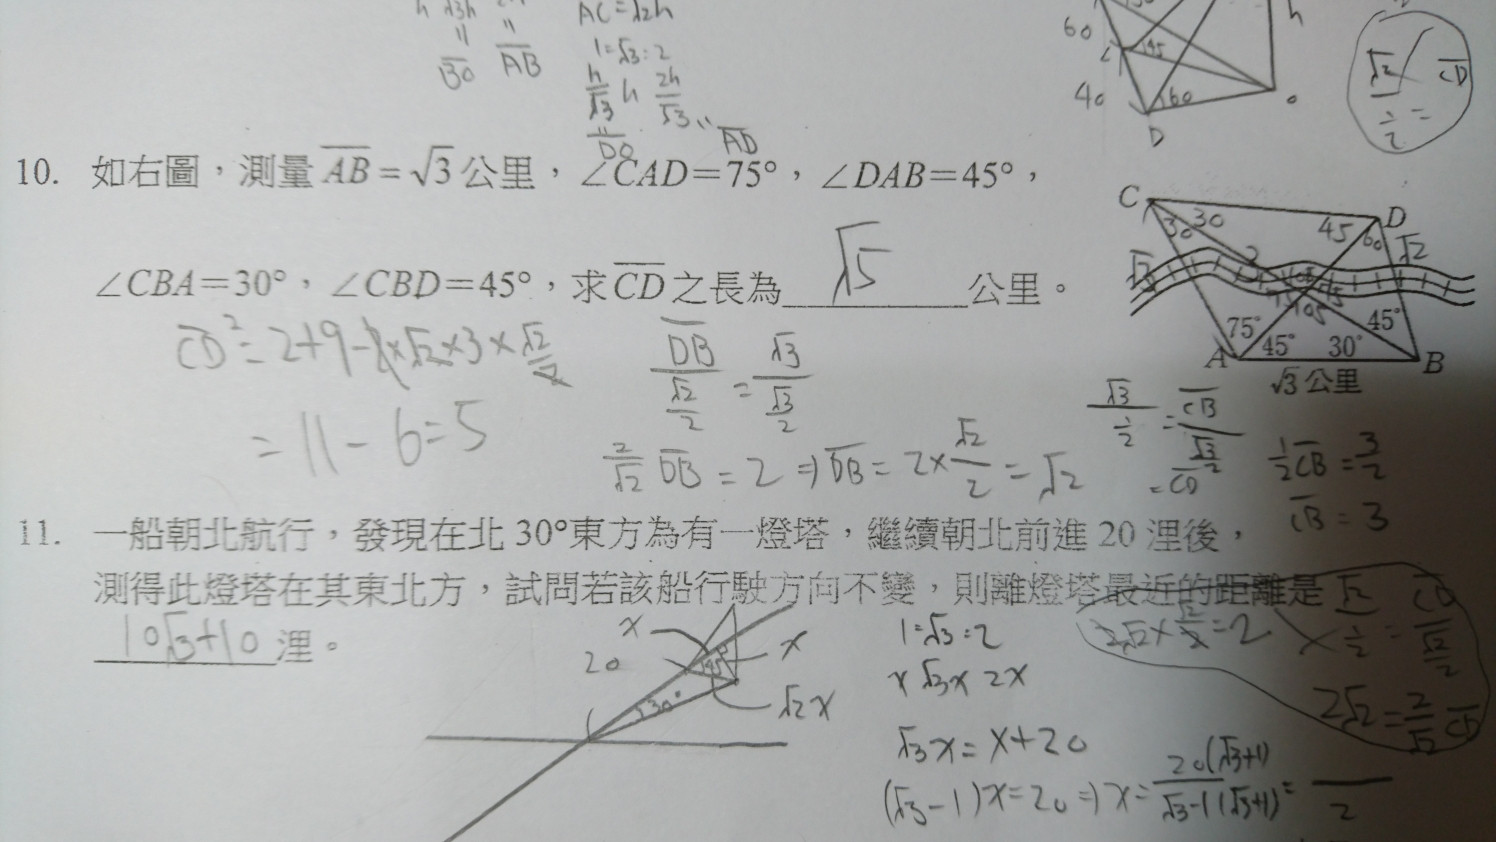 h √3h
" "
BO AB
AC=√2h
1:√3:2
h/√3 h 2h/√3
" "
DO AD
60
45
40 60
D
√2 CD
1/2 =
10. 如右圖，測量 AB = √3 公里，∠CAD=75°，∠DAB=45°，
∠CBA=30°，∠CBD=45°，求 CD 之長為 √5 公里。
C 30 30 45 60 D
√3 √2
75° 45° 30° 45°
A √3 公里 B
CD²=2+9-2×√2×3×√2/2
=11-6=5
DB/(√2/2) = √3/(√3/2)
2/√2 DB = 2 ⇒ DB = 2×√2/2 = √2
√3/(1/2) = CB/(√3/2)
=CD
1/2 CB = 3/2
CB = 3
11. 一船朝北航行，發現在北 30°東方為有一燈塔，繼續朝北前進 20 浬後，
測得此燈塔在其東北方，試問若該船行駛方向不變，則離燈塔最近的距離是
10√3+10 浬。
x
20 x
45°
30° √2x
1:√3:2
x √3x 2x
√3x = x+20
(√3-1)x=20 ⇒ x= 20(√3+1)/√3-1(√3+1) = /2
2√2×√2/2=2
√2/(1/2) = CD/(√2/2)
2√2 = 2/√2 CD